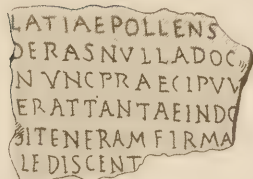 LATIAEPOLLENS
DERASNVLLADOC
NVNCPRAECIPVV
ERATTANTAEINDO
SITENERAMFIRMA
LEDISCENT